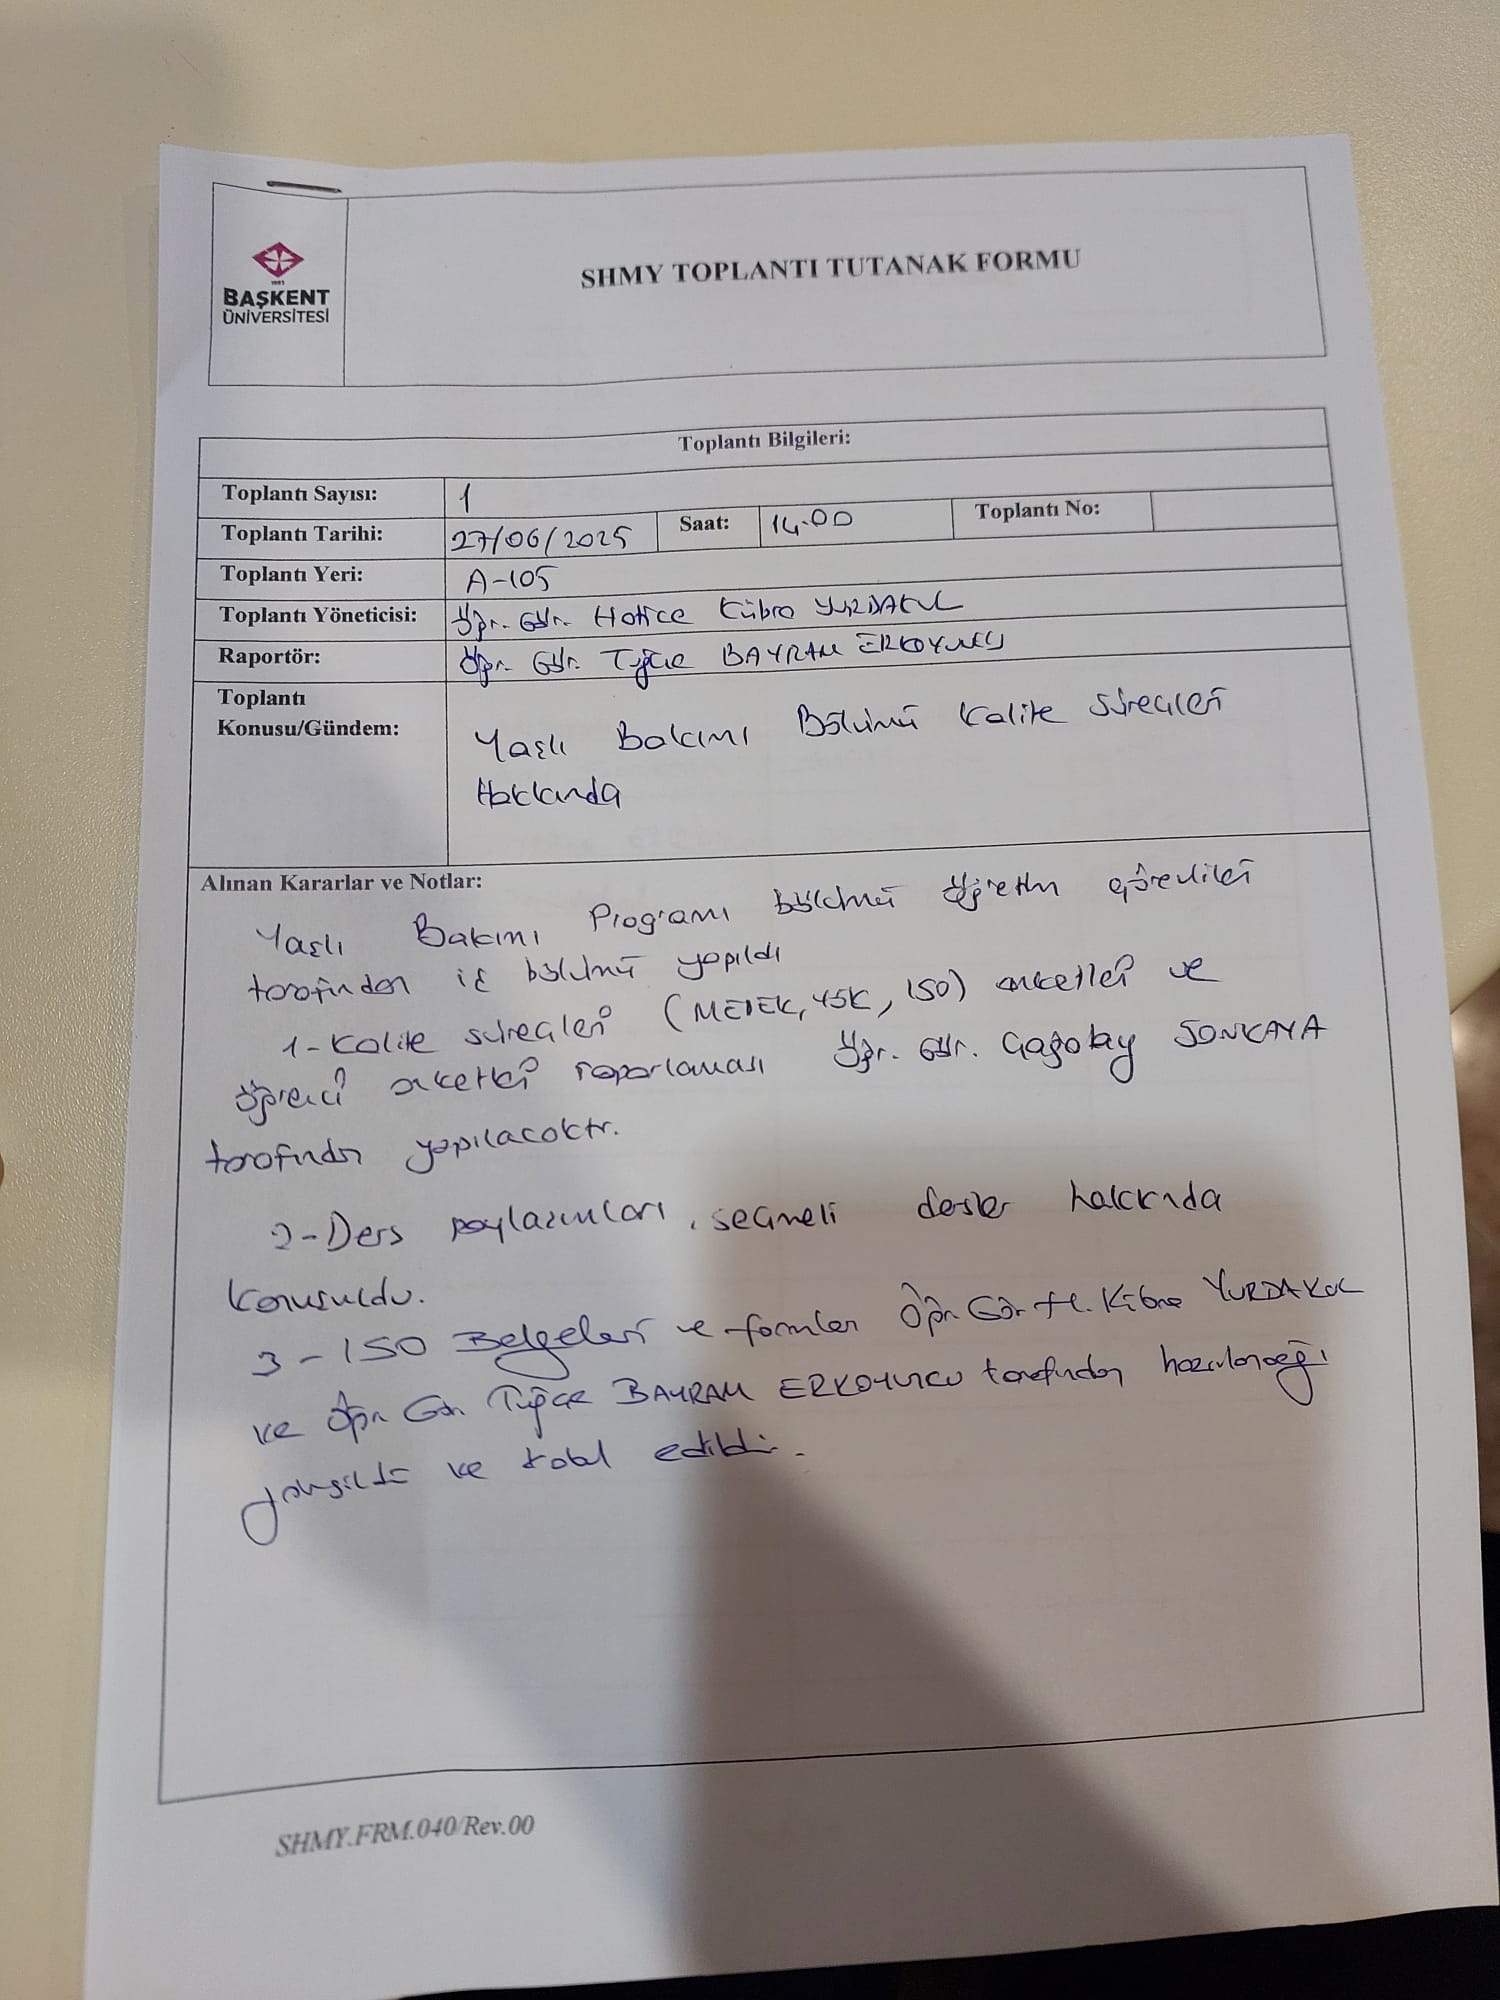 1993
BAŞKENT
ÜNİVERSİTESİ
SHMY TOPLANTI TUTANAK FORMU
Toplantı Bilgileri:
Toplantı Sayısı: 1
Toplantı Tarihi: 27/06/2025 Saat: 14.00 Toplantı No:
Toplantı Yeri: A-105
Toplantı Yöneticisi: Öğr. Gör. Hatice Kübra YURDAKUL
Raportör: Öğr. Gör. Tuğçe BAYRAM ERKOYUNCU
Toplantı
Konusu/Gündem: Yaşlı Bakımı Bölümü Kalite Süreçleri
Hakkında
Alınan Kararlar ve Notlar:
Yaşlı Bakımı Programı bölümü öğretim görevlileri
tarafından iş bölümü yapıldı
1-Kalite süreçleri (MEDEK, YÖK, ISO) anketleri ve
öğrenci anketleri raporlaması Öğr. Gör. Çağatay SONKAYA
tarafından yapılacaktır.
2-Ders paylaşımları, seçmeli dersler hakkında
konuşuldu.
3-ISO Belgeleri ve formları Öğr Gör H. Kübra YURDAKUL
ve Öğr Gör Tuğçe BAYRAM ERKOYUNCU tarafından hazırlanacağı
ve kabul edildi.
SHMY.FRM.040/Rev.00